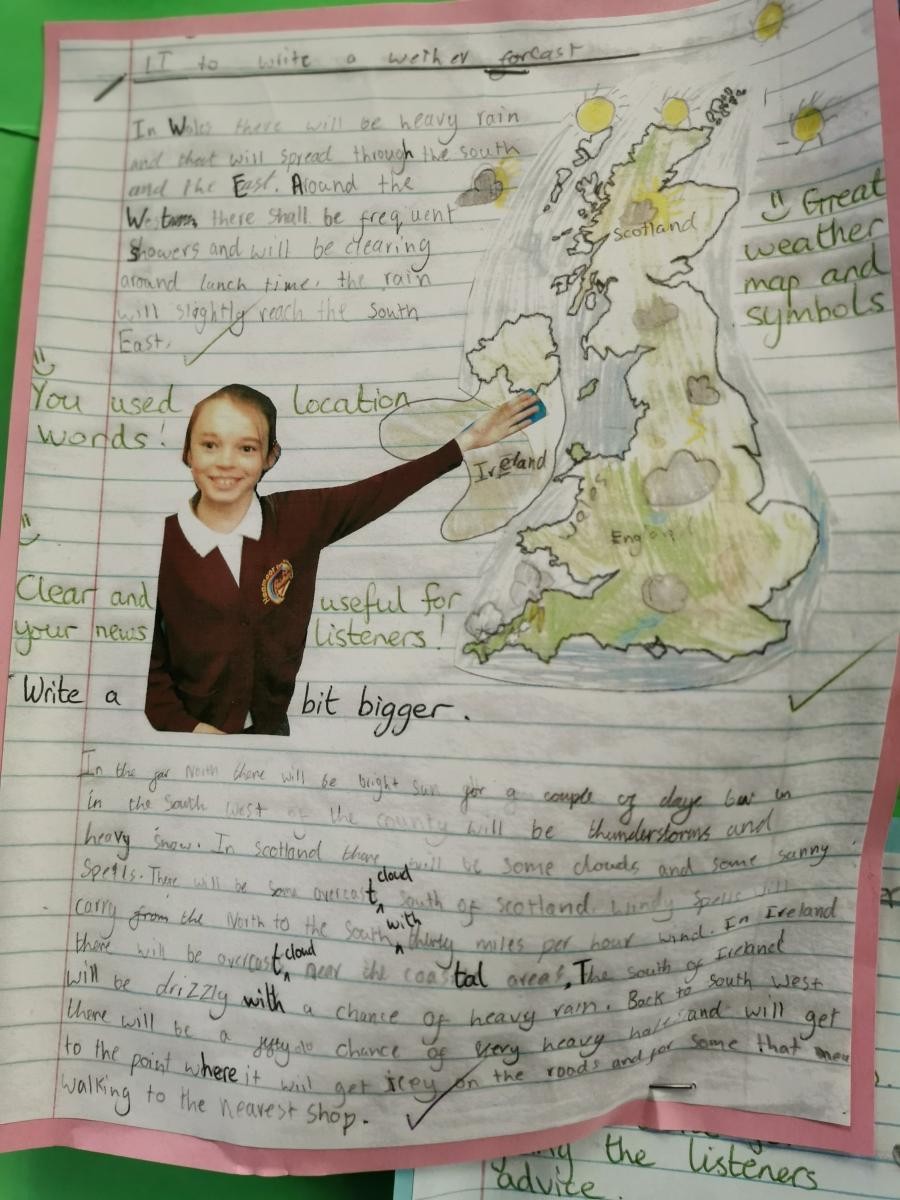 LI to write a wether forcast
In Wales there will be heavy rain
and that will spread through the south
and the East. Around the
Western, there shall be frequent
showers and will be clearing
around lunch time, the rain
will slightly reach the south
East.
Great
weather
map and
symbols
Scotland
Ireland
Wales
England
You used location
words!
Clear and useful for
your news listeners!
Write a bit bigger.
In the far North there will be bright sun for a couple of days but in
in the South west of the county will be thunderstorms and
heavy snow. In scotland there will be some clouds and some sunny
spells. There will be some overcast cloud South of Scotland. Windy spells will
carry from the North to the South with thirty miles per hour wind. In Ireland
there will be overcast cloud near the coastal areas, The south of Ireland
will be drizzly with a chance of heavy rain. Back to south west
there will be a chance of very heavy and will get
to the point where it will get icey on the roads and for some that
walking to the nearest shop.
the listeners
advice.